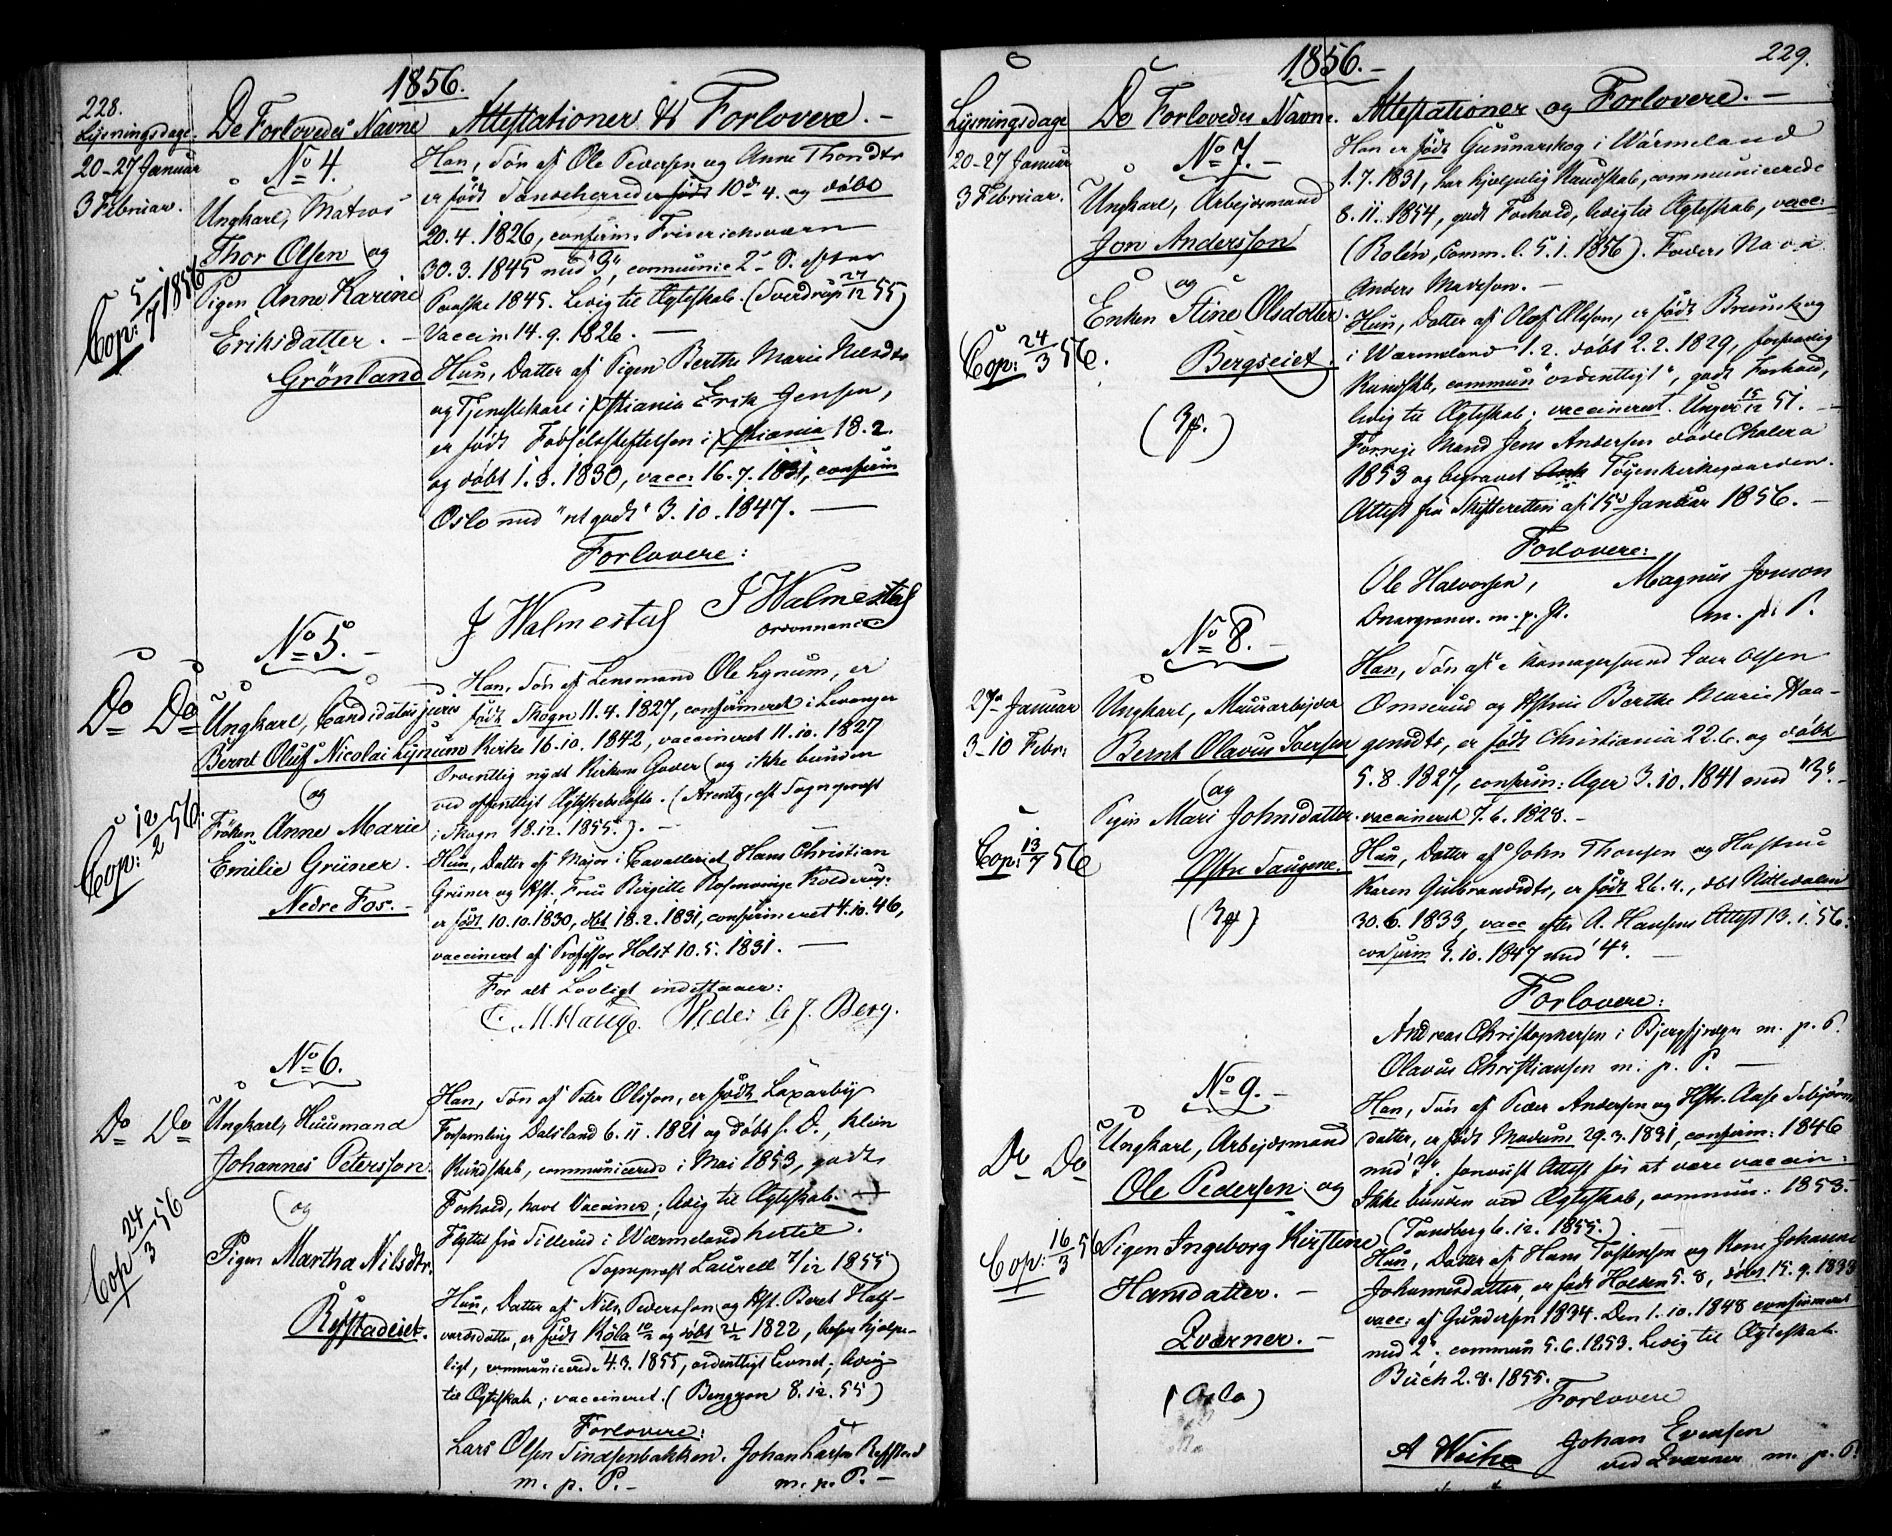 228.
1856.
Lysningsdage.
De Forlovedes Navne
Attestationer & Forlovere. –
20-27 Januar
3 Februar.
No 4.
Ungkarl, Matros
Thor Olsen og
Pigen Anne Karine
Eriksdatter. –
Grönland
Cop: 5/7 1856
Han, Søn af Ole Pedersen og Anne Thordtr
er født 10de 4. og døbt
20.4.1826, confirm. Friderichsværn
30.3.1845 med "3", communic 2. S. efter
Paaske 1845. Ledig til Ægteskab. (Sverdrup 27/12 55)
Vaccin: 14.9.1826. –
Hun, Datter af Pigen Berthe Marie Nilsdtr
og Tjenestekarl i Xstiania Erik Jensen,
er født Fødselsstiftelsen i Xstiania 18.2.
og døbt 1.3.1830, vacc: 16.7.1831, confirm
Oslo med "ret godt" 3.10.1847. –
Forlovere:
J Walmestad J Walmestad
No 5. –
Do Do
Ungkarl, Candidatus juris
Bernt Oluf Nicolai Lynum
og
Frøken Anne Marie
Emilie Grüner.
Nedre Fos. –
Cop: 12/2 56.
Han, Søn af Lensmand Ole Lynum, er
født Skogn 11.4.1827, confirmeret i Levanger
Kirke 16.10.1842, vaccineret 11.10.1827
Ordentlig nydt Kirkens Goder og ikke bunden
ved offentligt Ægteskabsløfte. (Arentz, cst Sognepræst
i Skogn 18.12.1855.). –
Hun, Datter af Major i Cavalleriet Hans Christian
Grüner og Hst. Frue Birgitte Rosenvinge Kolderup.
er født 10.10.1830, døbt 18.2.1831, confirmeret 4.10.46,
vaccineret af Professor Holst 10.5.1831. –
For alt Lovligt indestaaer:
C. M. Hauge. C. J. Berg.
No 6.
Do Do
Ungkarl, Huusmand
Johannes Petersson
og
Pigen Martha Nilsdtr.
Rystadeiet.
Cop: 24/3 56
Han, Søn af Peter Olsson, er født Laxarby
Forsamling Dalsland 6.11.1821 og døbt s. D., klein
Kundskab, communicerede i Mai 1853, godt
Forhold, havt Vaccinen; ledig til Ægteskab. –
Flyttet fra Sillerud i Wærmeland hertil.
(Sognepræst Laurell 7/12 1855)
Hun, Datter af Nils Pedersson og Hst. Beret Half-
varsdatter, er født Köla 10/2 og døbt 21/2 1822, læser hjelpe-
ligt, communicerede 4.3.1855, ordentligt Levnet; ledig
til Ægteskab; vaccineret. (Bengzon 8.12.55)
Forlovere:
Lars Olsen Tindsenbakken. Johan Larsen Refstad
m. p. P. – m. p. P. –
229.
1856. –
Lysningsdage
De Forlovedes Navne.
Attestationer og Forlovere. –
20-27 Januar
3 Februar.
No 7. –
Ungkarl, Arbejdsmand
Jon Andersson
og
Enken Stine Olsdatter.
Bergseiet.
Cop: 24/3 56.
Han er født Gunnarskog i Wärmeland
1.7.1831, har hjelpelig Kundskab, communicerede
8.11.1854, godt Forhold, ledig til Ægteskab, vacc:
(Rolén, Comm. l. 5.1.1856). Faders Navn
Anders
Hun, Datter af Olof Olsson, er født Brunskog
i Wærmeland 1.2. døbt 2.2.1829, forsvarlig
Kundskb, commun "ordentligt", godt Forhold,
ledig til Ægteskab; vaccineret. Unger 15/12 51. –
Forrige Mand Jens Andersen døde Cholera
1853 og begravet Tøyenkirkegaarden.
Attest fra Skifteretten af 15de Januar 1856. –
Forlovere:
Ole Halvorsen, Magnus Jonson
m. p. P. m. p. P.
No 8. –
27de Januar
3-10 Febr:
Ungkarl, Muurarbejder
Bernt Olavus Iversen
og
Pigen Mari Johnsdatter.
Østre Taugene.
Cop: 13/7 56
Han, Søn af Iver Olsen
Omsrud og Hstru Berthe Marie Haa-
gensdtr, er født Christiania 22.6. og døbt
5.8.1827, confirm: Ager 3.10.1841 med "3". –
vaccineret 7.6.1828. –
Hun, Datter af John Thorsen og Hustrue
Karen Gulbrandsdtr, er født 26.4., døbt Nittedalen
30.6.1833, vacc efter A. Hansens Attest 13.1.56.
confirm 3.10.1847 med "4". –
Forlovere:
Andreas Christophersen i m. p. P.
Olavus Christiansen m. p. P. –
No 9. –
Do Do
Ungkarl, Arbejdsmand
Ole Pedersen og
Pigen Ingeborg Kirstine
Hansdatter. –
Qværner. –
(Oslo)
Cop: 16/3 56
Han, Søn af Peder Andersen og Hstr. Aase Tobjørns
datter, er født Modum 29.3.1831, confirm: 1846
med "3". forevist Attest for at være vaccin:
Ikke bunden ved Ægteskab, commun: 1853.
(Tandberg 6.12.1855.)
Hun, Datter af Hans Tostensen og Rone Johanne
Johannesdatter, er født Holden 5.8, døbt 15.9.1833
vacc: af Gundersen 1834. Den 1.10.1848 confirmeret
med 2. commun 5.6.1853. Ledig til Ægteskab.
Buch 2.8.1855.
Forlovere
A Weihe Johan Evensen
ved Qværner m. p. P.